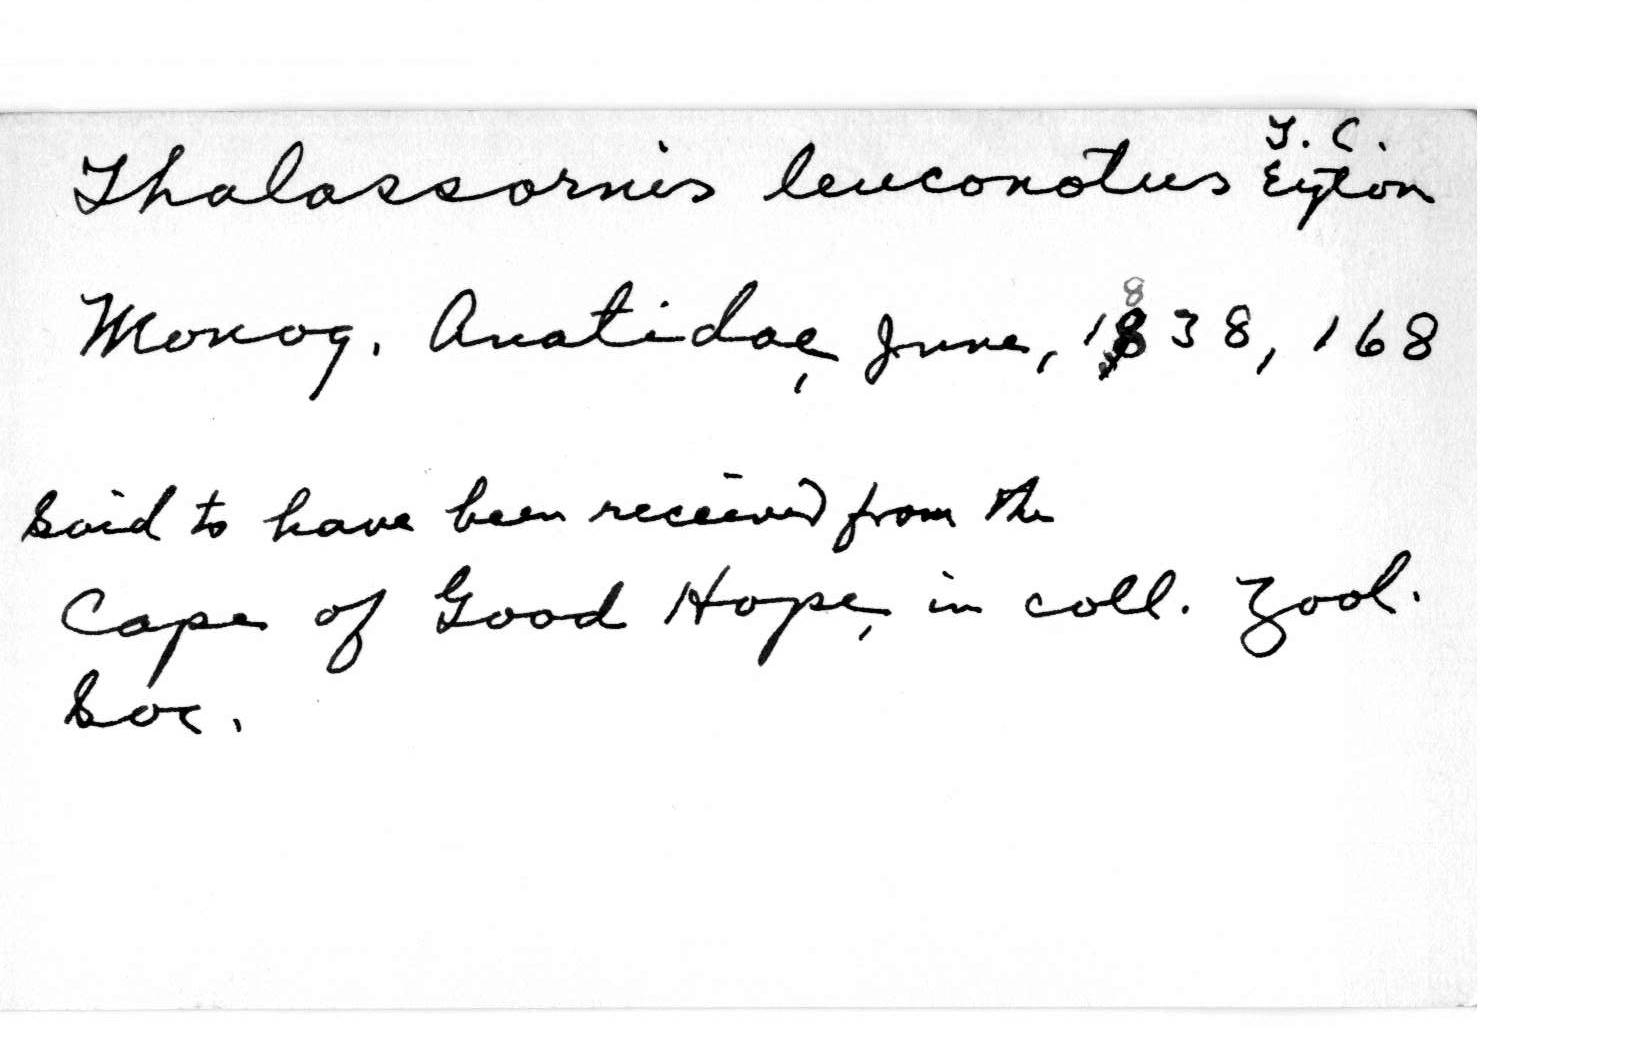 Thalassornis leuconotus T. C. Eyton
Monog. Anatidae, June, 1838, 168
Said to have been received from the
Cape of Good Hope, in coll. Zool.
Soc.